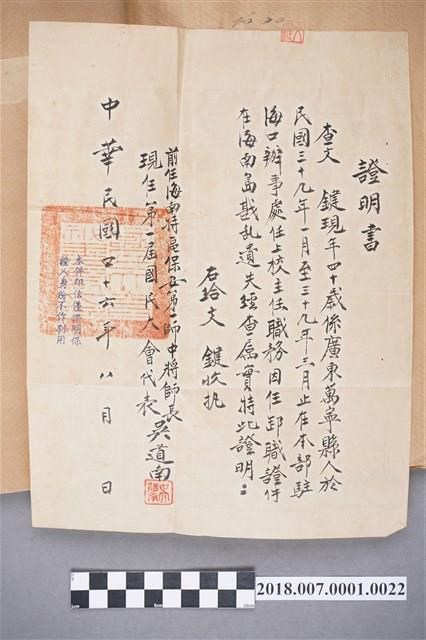 證明書
查文　鍵現年四十歲係廣東萬寧縣人於
民國三十九年一月至三十九年三月止在本部駐
海口辦事處任上校主任職務因任卸職證件
在海南島戡乱遺失經查屬實特此證明：
右給文　鍵收執
前任海南特區保安第一師中將師長
現任第一屆國民大會代表吳道南
本件印信僅證明保
證人身份不作別用
中華民國四十六年八月　日
2018.007.0001.0022